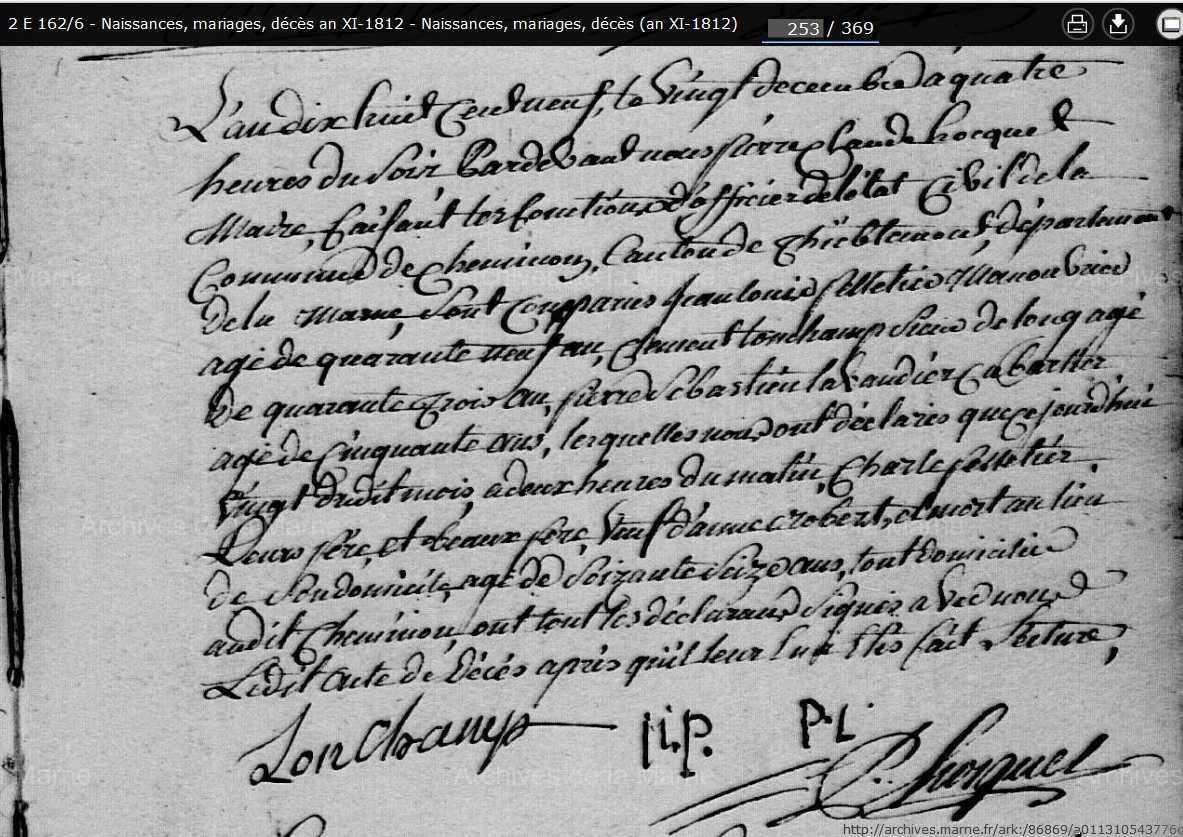 2 E 162/6 - Naissances, mariages, décès an XI-1812 - Naissances, mariages, décès (an XI-1812) 253 / 369
L'an dix huit Cent neuf, le Vingt decembre a quatre
heures du Soir Pardevant nous pierre Claude hocquel
Maire, faisant les fonctions d'officier de létat Civil de la
Commune de Cheminon, Canton de thiéblemont, département
dela Marne, Sont Comparus jean louis pelletier Manouvrier
agé de quarante neuf an, Clement lonchamp Scieur de long agé
de quarante trois an, pierre Sébastien lavaudier Cabartier
agé de Cinquante ans, lesquelles nous ont déclarés que ce jourd'hui
Vingt dudit mois, a deux heures du matin, Charle pelletier,
Leurs pére, et beaux pére, Veuf d'anne robert, est mort au lieu
de Son domicile, agé de Soizante Seize ans, tout domicilié
audit Cheminon, ont tout les déclarans Signés avec nous
Ledit acte de Décès après qu'il leur fait Lecture,
Lonchamp
P.L.
P. hocquel
Archives de la Marne
http://archives.marne.fr/ark:/86869/a0113105437766